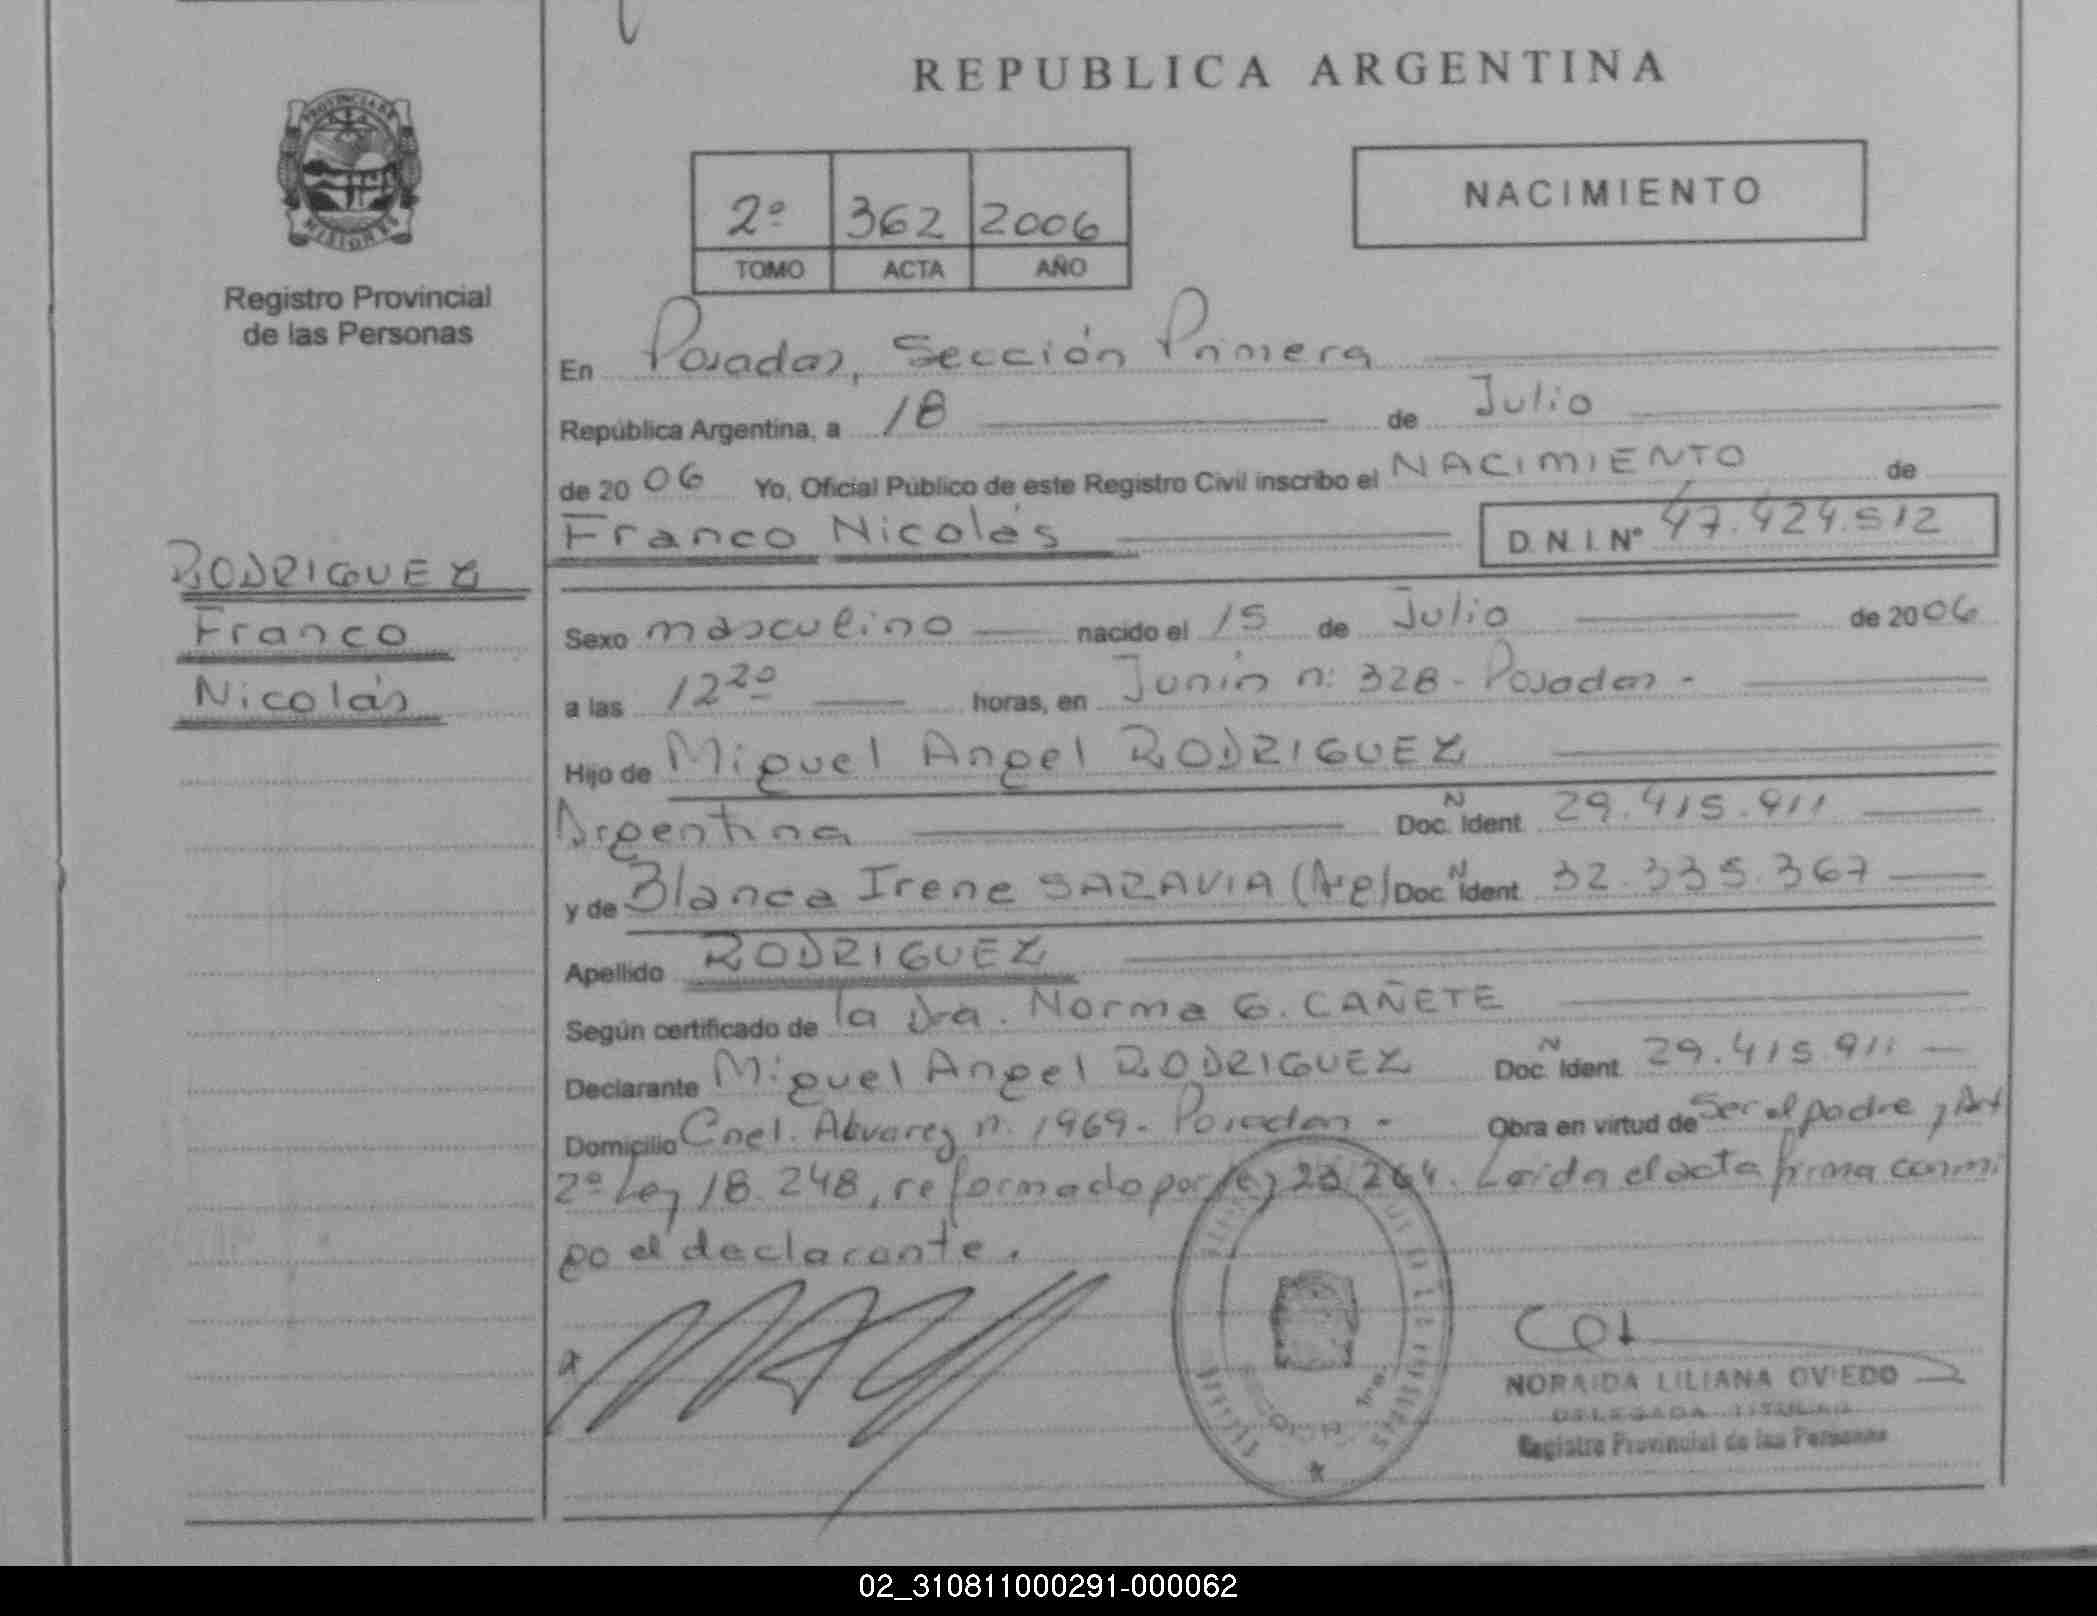 REPUBLICA ARGENTINA
PROVINCIA DE
MISIONES
Registro Provincial
de las Personas
2º 362 2006
TOMO ACTA AÑO
NACIMIENTO
En Posadas, Sección Primera
República Argentina, a 18 de Julio
de 2006 Yo, Oficial Público de este Registro Civil inscribo el NACIMIENTO de
Franco Nicolás D.N.I. Nº 47.424.512
RODRIGUEZ
Franco
Nicolás
Sexo masculino nacido el 15 de Julio de 2006
a las 12 20 horas, en Junín n: 328 - Posadas -
Hijo de Miguel Angel RODRIGUEZ
Argentina Doc. N Ident. 29.415.911
y de Blanca Irene SARAVIA (Arg) Doc. N Ident. 32.335.367
Apellido RODRIGUEZ
Según certificado de la Dra. Norma G. CAÑETE
Declarante Miguel Angel RODRIGUEZ Doc. N Ident. 29.415.911
Domicilio Cnel. Alvarez n. 1969 - Posadas - Obra en virtud de Ser el padre, Art
2º Ley 18.248, reformado por ley 23.264. Leída el acta firma conmi
go el declarante.
NORAIDA LILIANA OVIEDO
DELEGADA TITULAR
Registro Provincial de las Personas
02_310811000291-000062